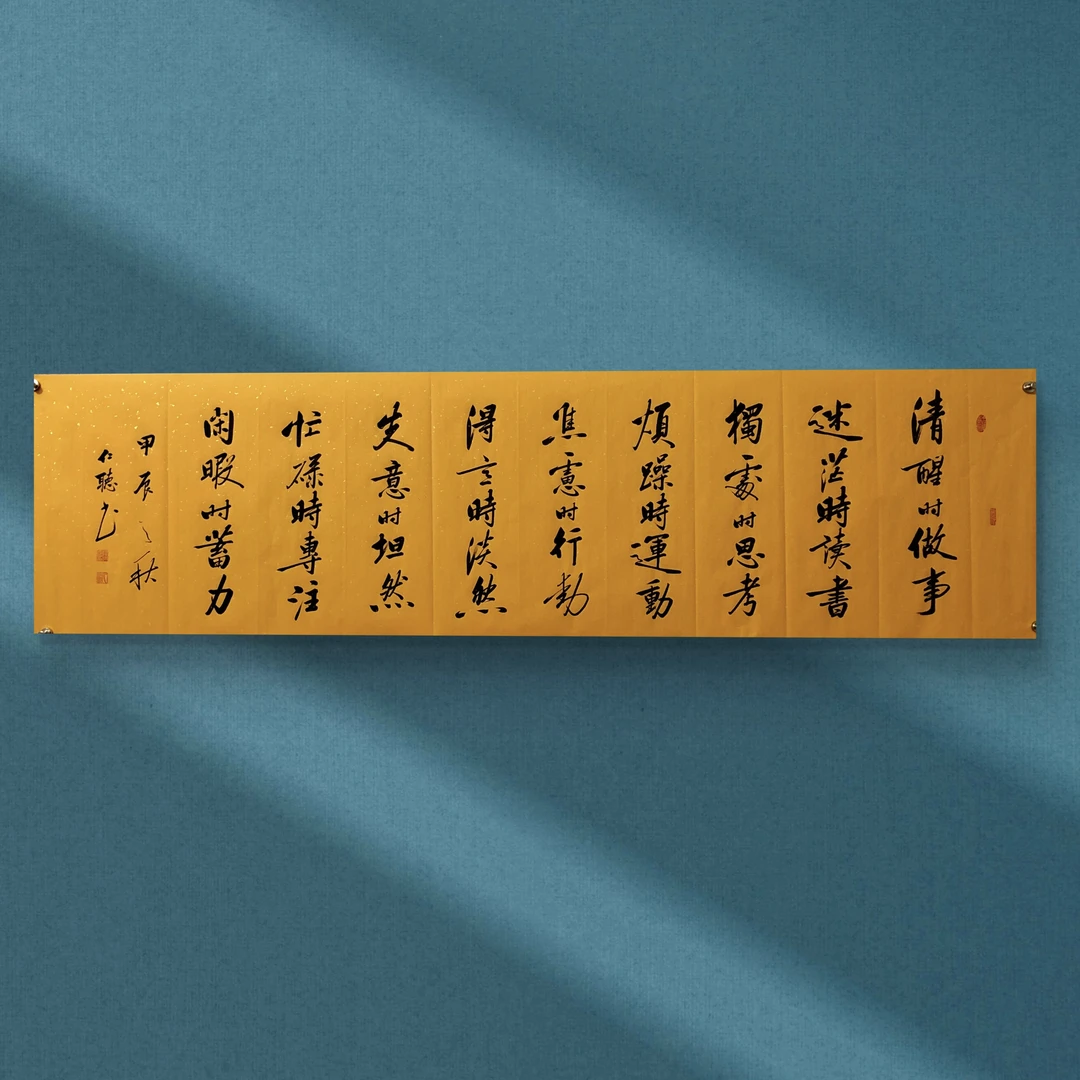 清醒时做事
迷茫時读書
獨處时思考
煩躁時運動
焦慮时行動
得意時淡然
失意时坦然
忙碌時專注
閑暇时蓄力
甲辰之秋
仁聽书